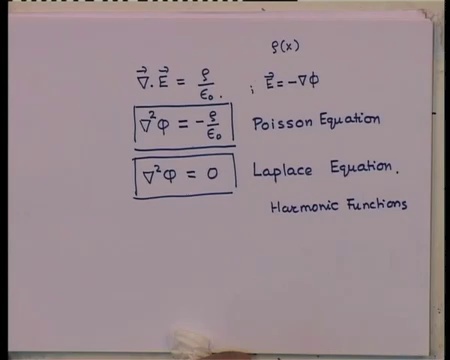 ρ(x)
∇⃗·E⃗ = ρ/ε₀. ; E⃗ = -∇φ
∇²φ = -ρ/ε₀ Poisson Equation
∇²φ = 0 Laplace Equation.
Harmonic Functions